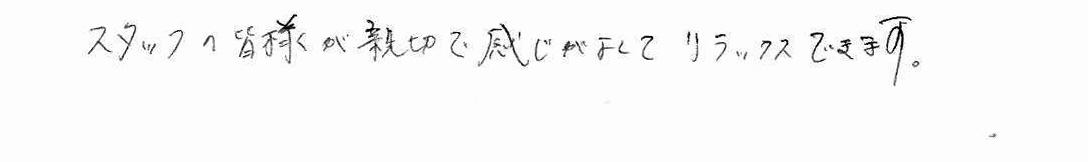 スタッフの皆様が親切で感じがよくてリラックスできます。